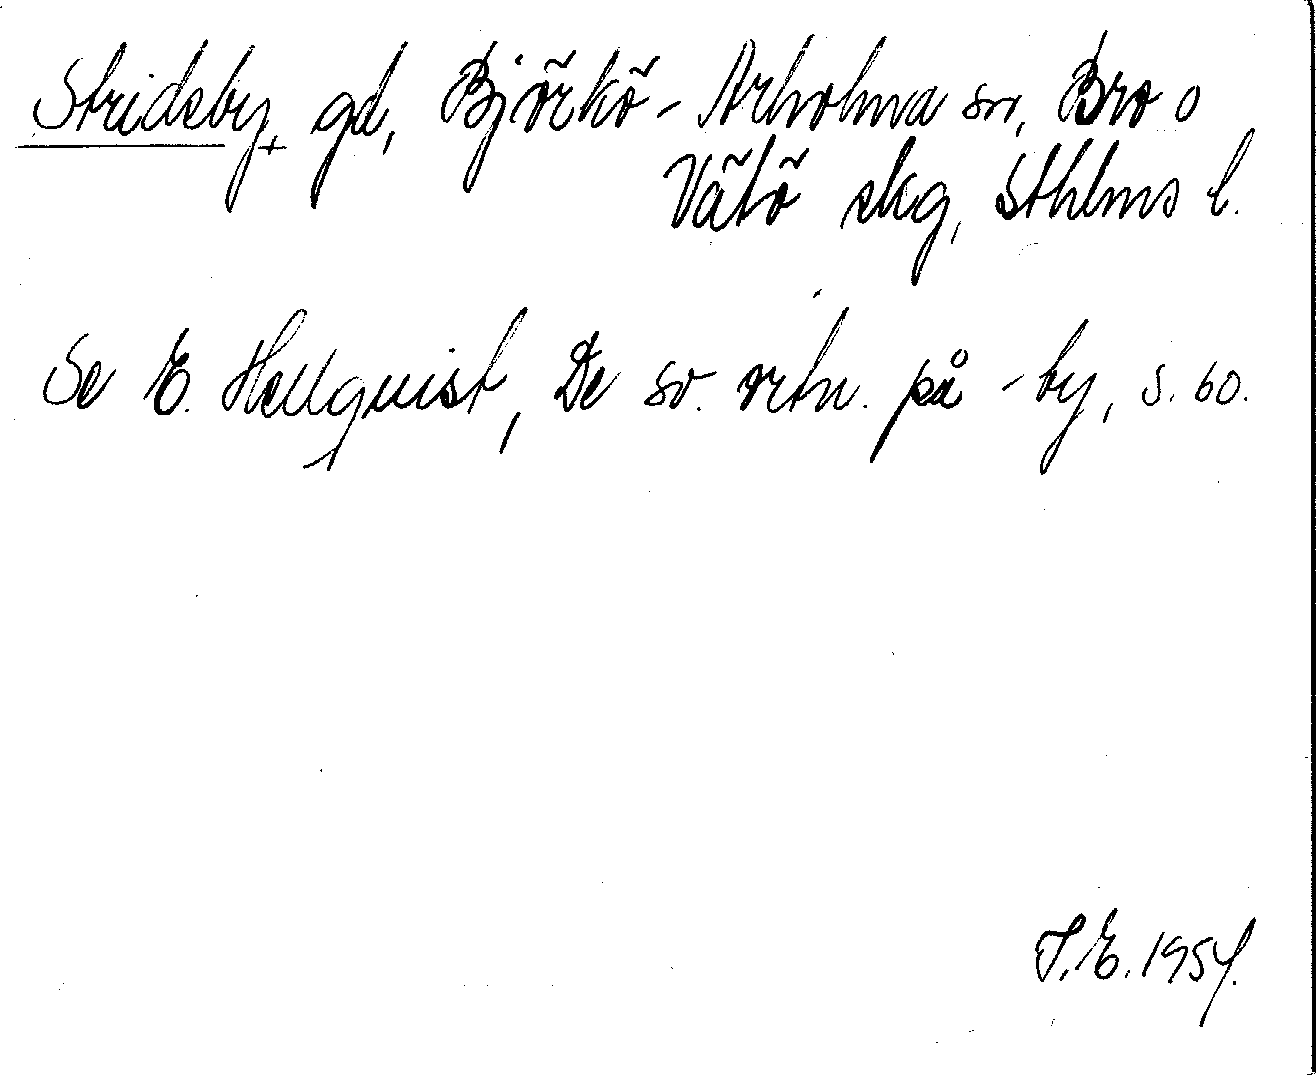 Stridsby, gd, Björkö-Arholma sn, Bro o
Vätö skg, Sthlms l.
Se E. Hellquist, De sv. ortn. på -by, s. 60.
I.E. 1954.